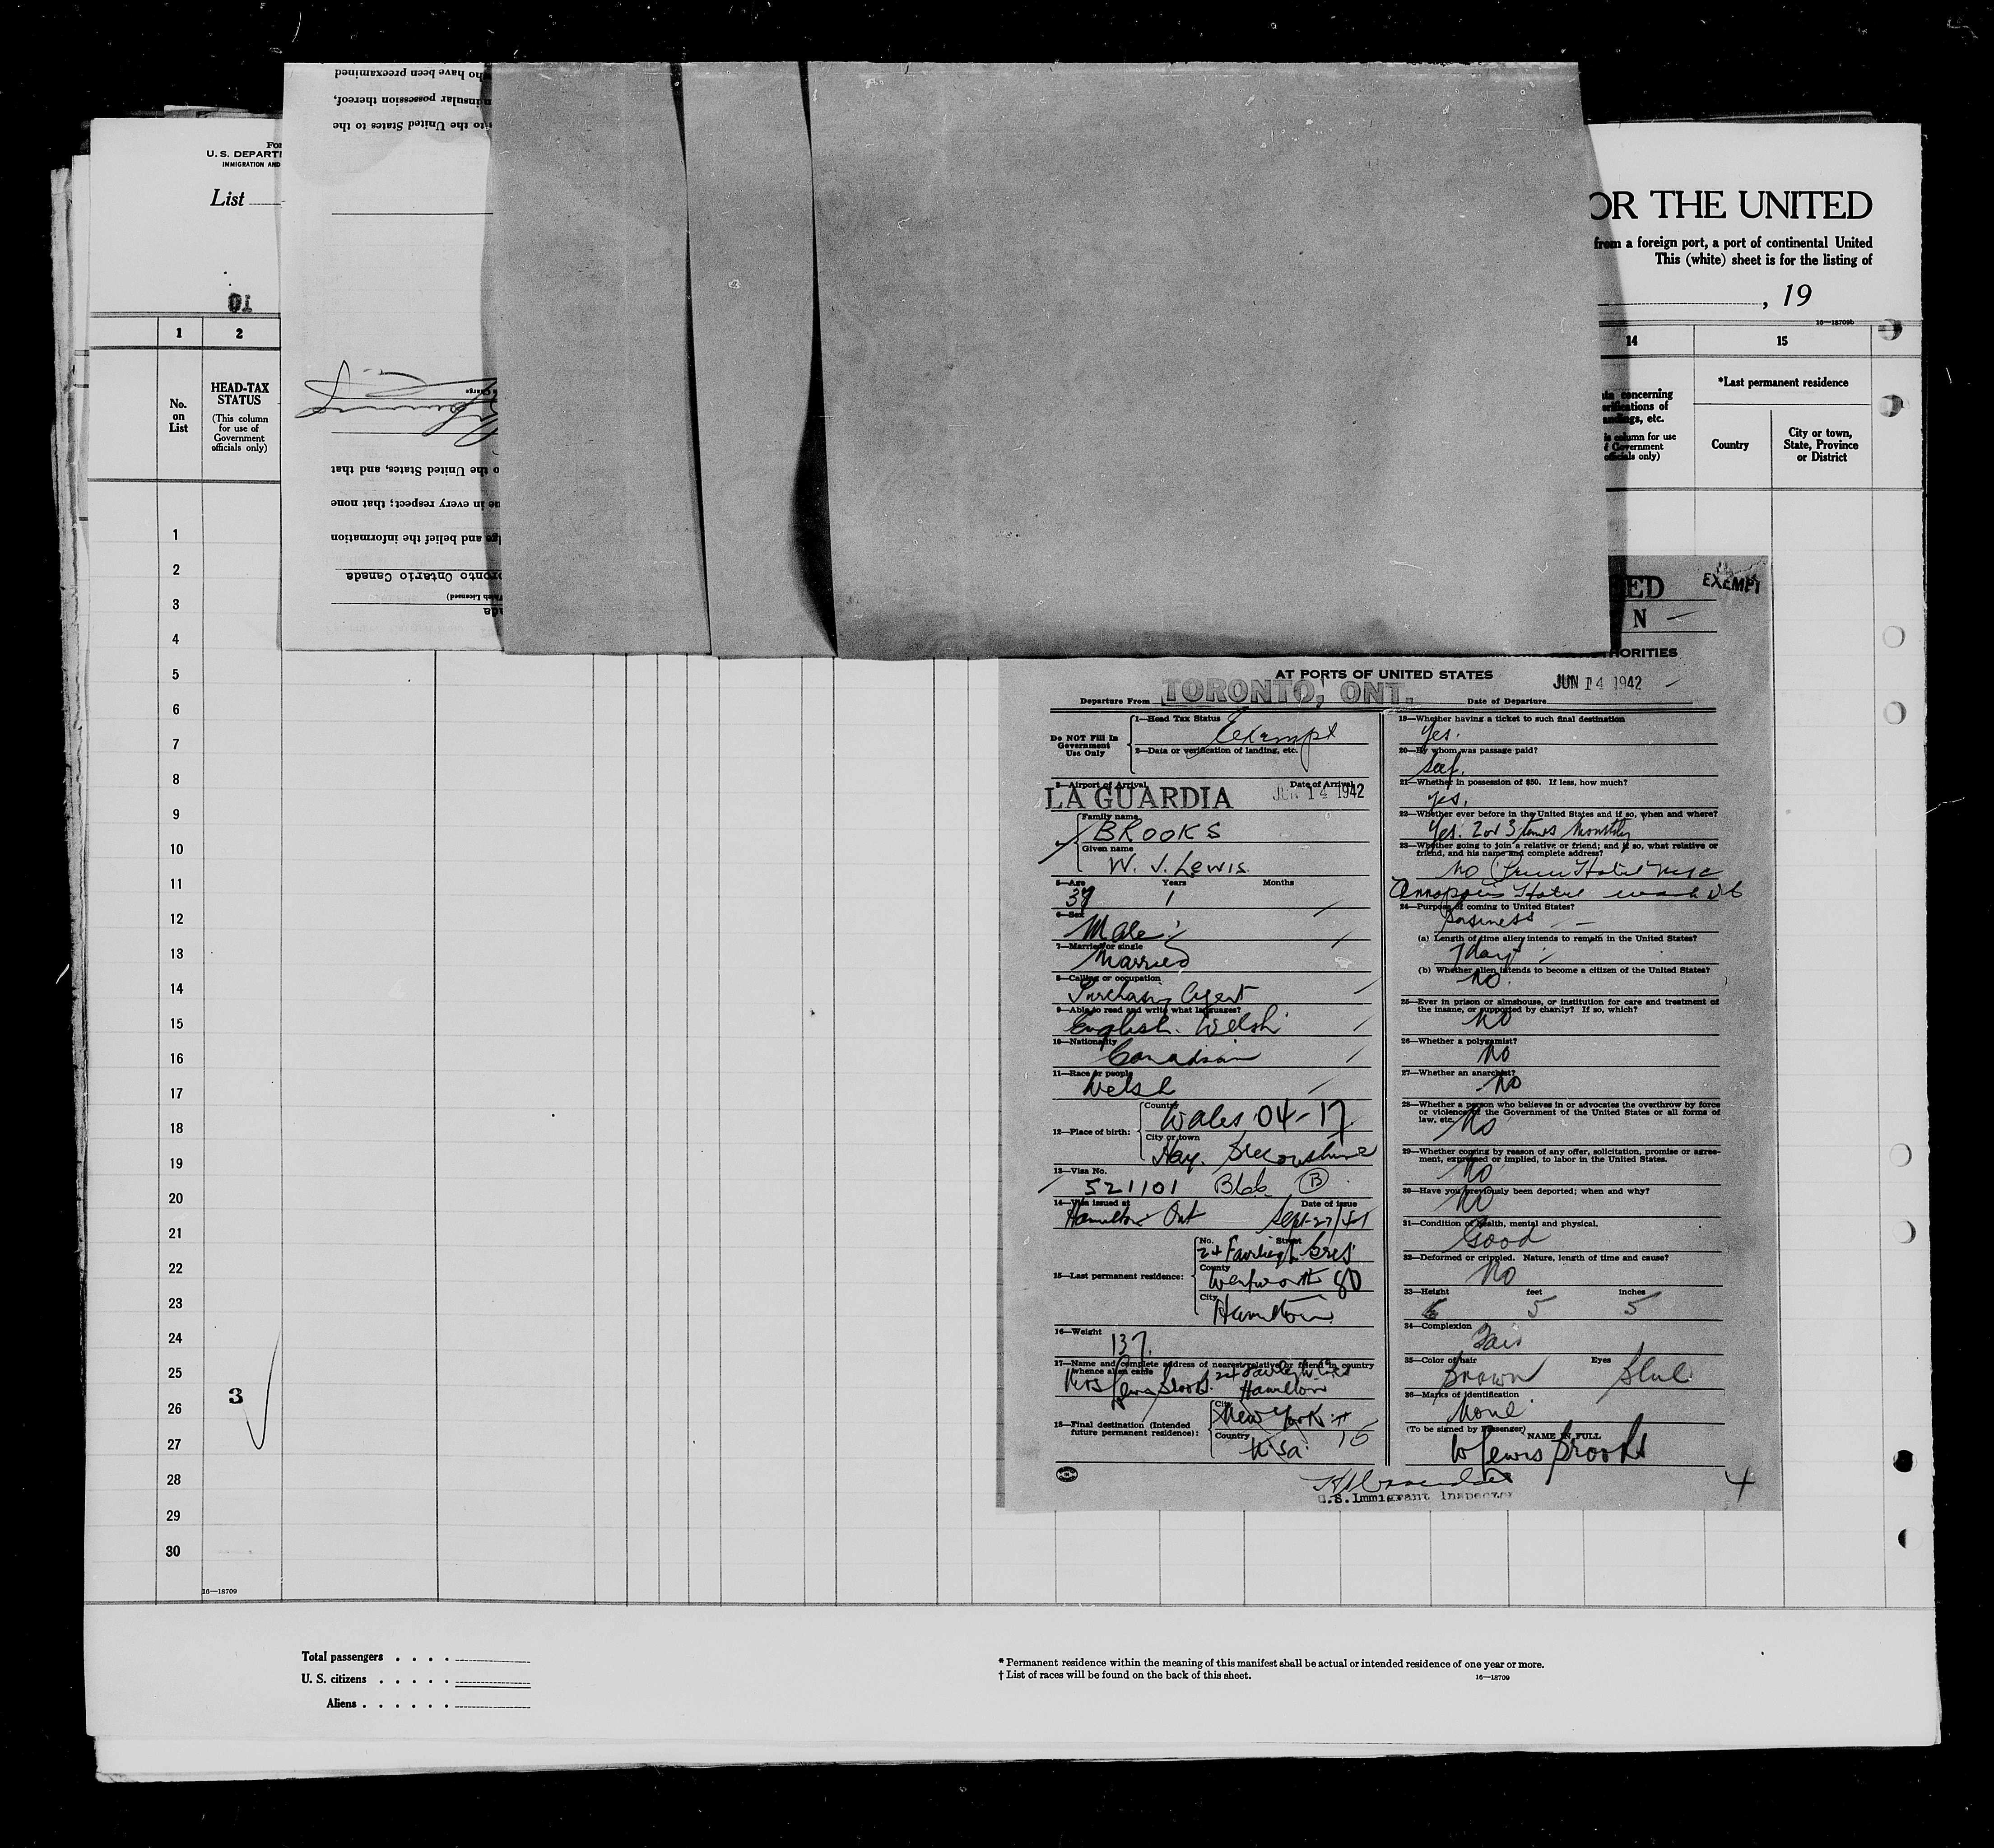 U. S. DEPART
IMMIGRATION AND
List
10
OR THE UNITED
from a foreign port, a port of continental United
This (white) sheet is for the listing of
, 19
16—18709b
1
2
14
15
No. on List
HEAD-TAX STATUS
(This column for use of Government officials only)
concerning
verifications of
landings, etc.
column for use
Government
officials only)
*Last permanent residence
Country
City or town, State, Province or District
ho have been preexamined
insular possession thereof,
to the United States to the
o the United States, and that
ue in every respect; that none
ge and belief the information
oronto Ontario Canada
1
2
3
4
5
6
7
8
9
10
11
12
13
14
15
16
17
18
19
20
21
22
23
24
25
26
27
28
29
30
3
16—18709
Total passengers
U. S. citizens
Aliens
* Permanent residence within the meaning of this manifest shall be actual or intended residence of one year or more.
† List of races will be found on the back of this sheet.
16—18709
EXEMPT
ED
N
HORITIES
AT PORTS OF UNITED STATES
Departure From TORONTO, ONT.
Date of Departure JUN 14 1942
Do NOT Fill In
Government
Use Only
1—Head Tax Status
Exempt
2—Data or verification of landing, etc.
3—Airport of Arrival
Date of Arrival
LA GUARDIA JUN 14 1942
Family name
BROOKS
Given name
W. J. LEWIS
5—Age Years Months
6—Sex
Male
7—Married or single
Married
8—Calling or occupation
Purchasing Agent
9—Able to read and write what languages?
English. Welsh
10—Nationality
Canadian
11—Race or people
Welsh
12—Place of birth:
Country
Wales 04-17
City or town
Hay. Breconshire
13—Visa No.
521101 B
14—Visa issued at Date of issue
Hamilton Ont Sept 27/41
15—Last permanent residence:
No. Street
24 Fairleigh Cres
County
Wentworth 80
City
Hamilton
16—Weight
137
17—Name and complete address of nearest relative or friend in country
whence alien came
Mrs Lewis Brooks. 24 Fairleigh Cres
Hamilton
18—Final destination (Intended
future permanent residence):
City
New York
Country
USA
19—Whether having a ticket to such final destination
Yes.
20—By whom was passage paid?
Self.
21—Whether in possession of $50. If less, how much?
Yes.
22—Whether ever before in the United States and if so, when and where?
Yes. 2 or 3 times Monthly
23—Whether going to join a relative or friend; and if so, what relative or
friend, and his name and complete address?
No Hotel NYC
Hotel Wash DC
24—Purpose of coming to United States?
Business
(a) Length of time alien intends to remain in the United States?
7 days
(b) Whether alien intends to become a citizen of the United States?
No.
25—Ever in prison or almshouse, or institution for care and treatment of
the insane, or supported by charity? If so, which?
No
26—Whether a polygamist?
No
27—Whether an anarchist?
No
28—Whether a person who believes in or advocates the overthrow by force
or violence of the Government of the United States or all forms of
law, etc.
No
29—Whether coming by reason of any offer, solicitation, promise or agree-
ment, expressed or implied, to labor in the United States.
No
30—Have you previously been deported; when and why?
No
31—Condition of health, mental and physical.
Good
32—Deformed or crippled. Nature, length of time and cause?
No
33—Height feet inches
5 5
34—Complexion
Fair
35—Color of hair Eyes
Brown Blue
36—Marks of identification
None
(To be signed by Passenger) NAME IN FULL
W Lewis Brooks
U.S. Immigrant Inspector
4